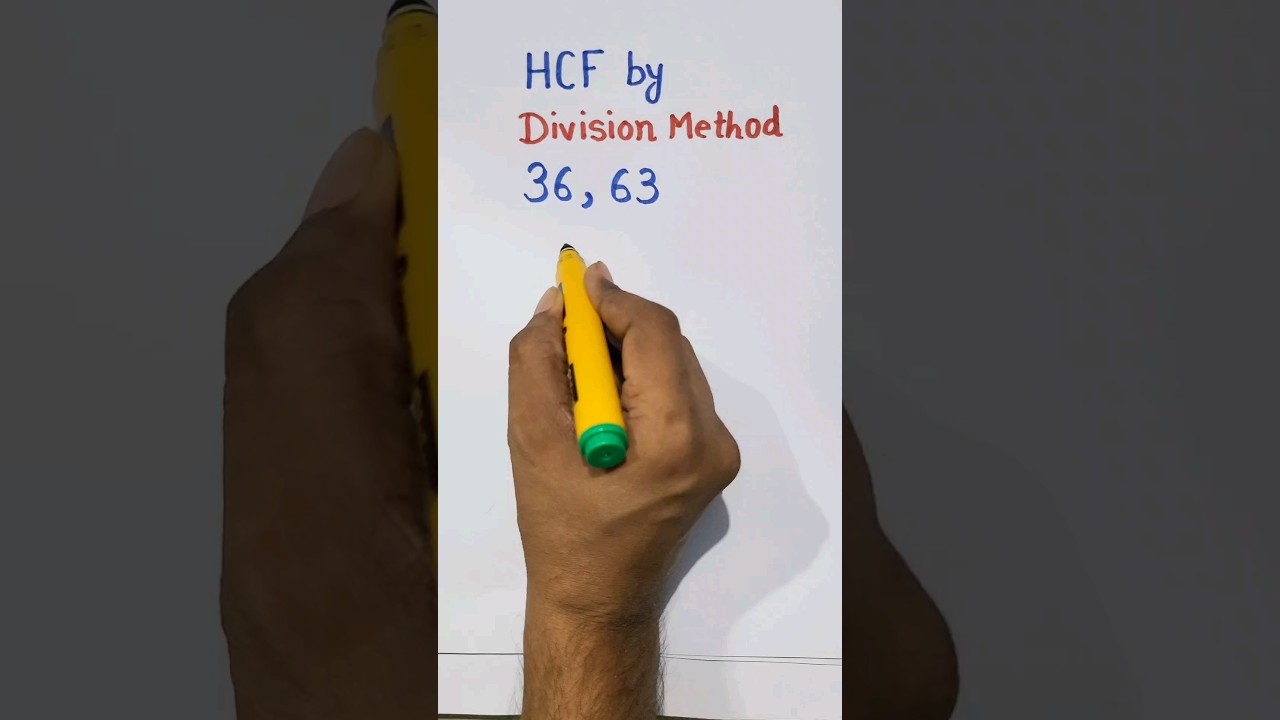 HCF by
Division Method
36, 63